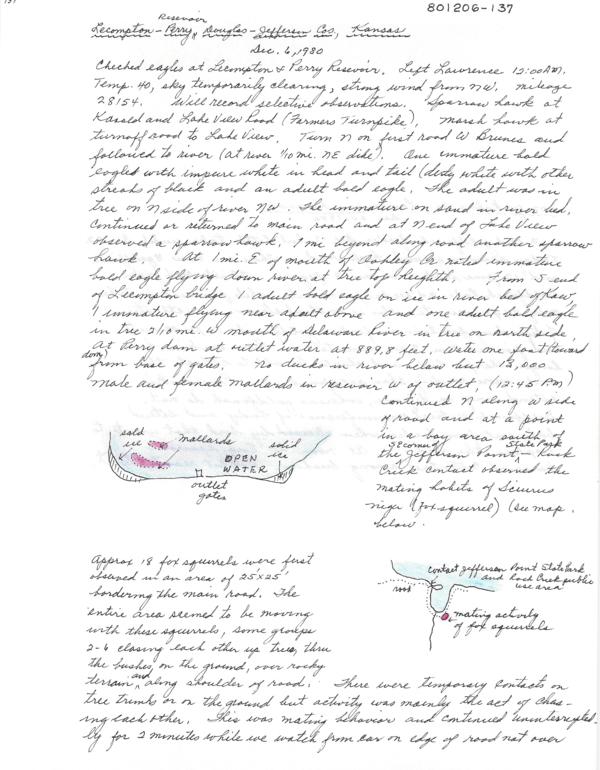 801206-137
Reservoir
Lecompton - Perry, Douglas - Jefferson Cos, Kansas
Dec. 6, 1980
Checked eagles at Lecompton & Perry Resevoir. Left Lawrence 12:00AM.
Temp. 40, sky temporarily clearing, strong wind from NW. mileage
28154. Will record selective observations. Sparrow hawk at
Kasold and Lake View Road (Farmers Turnpike). Marsh hawk at
turnoff road to Lake View. Turn N on first road W Brunes and
followed to river (at river 1/10 mi. NE dike). One immature bald
eagled with impure white in head and tail (dirty white with other
streaks of black and an adult bald eagle. The adult was in
tree on N side of river NW. The immature on sand in river bed.
Continued or returned to main road and at N end of Lake View
observed a sparrow hawk. 1 mi beyond along road another sparrow
hawk. At 1 mi. E of mouth of Oakley Cr. noted immature
bald eagle flying down river at tree top heighth. From S end
of Lecompton bridge 1 adult bald eagle on ice in river bed of Kaw,
1 immature flying near adult above and one adult bald eagle
in tree 2/10 mi. W mouth of Delaware River in tree on north side.
At Perry dam at outlet water at 889.8 feet. Water one foot (toward
dam)
from base of gates. No ducks in river below but 13,000
male and female mallards in resevoir W of outlet. (12:45 PM)
Continued N along W side
of road and at a point
in a bay area south of
SE corner of State Park
the Jefferson Point - Rock
Crick contact observed the
mating habits of Sciurus
niger (fox squirrel) (see map
below.
solid
ice
mallards
solid
ice
OPEN
WATER
outlet
gates
Approx 18 fox squirrels were first
observed in an area of 25'x25'
bordering the main road. The
entire area seemed to be moving
with these squirrels, some groups
2-6 closing each other up trees, thru
the bushes, on the ground, over rocky
terrain and along shoulder of road. There were temporary contacts on
tree trunks or on the ground but activity was mainly the act of chas-
ing each other. This was mating behavior and continued uninterrupted-
ly for 2 minutes while we watch from car on edge of road not over
contact Jefferson Point State Park
and Rock Crick public
use area
road
mating activity
of fox squirrels